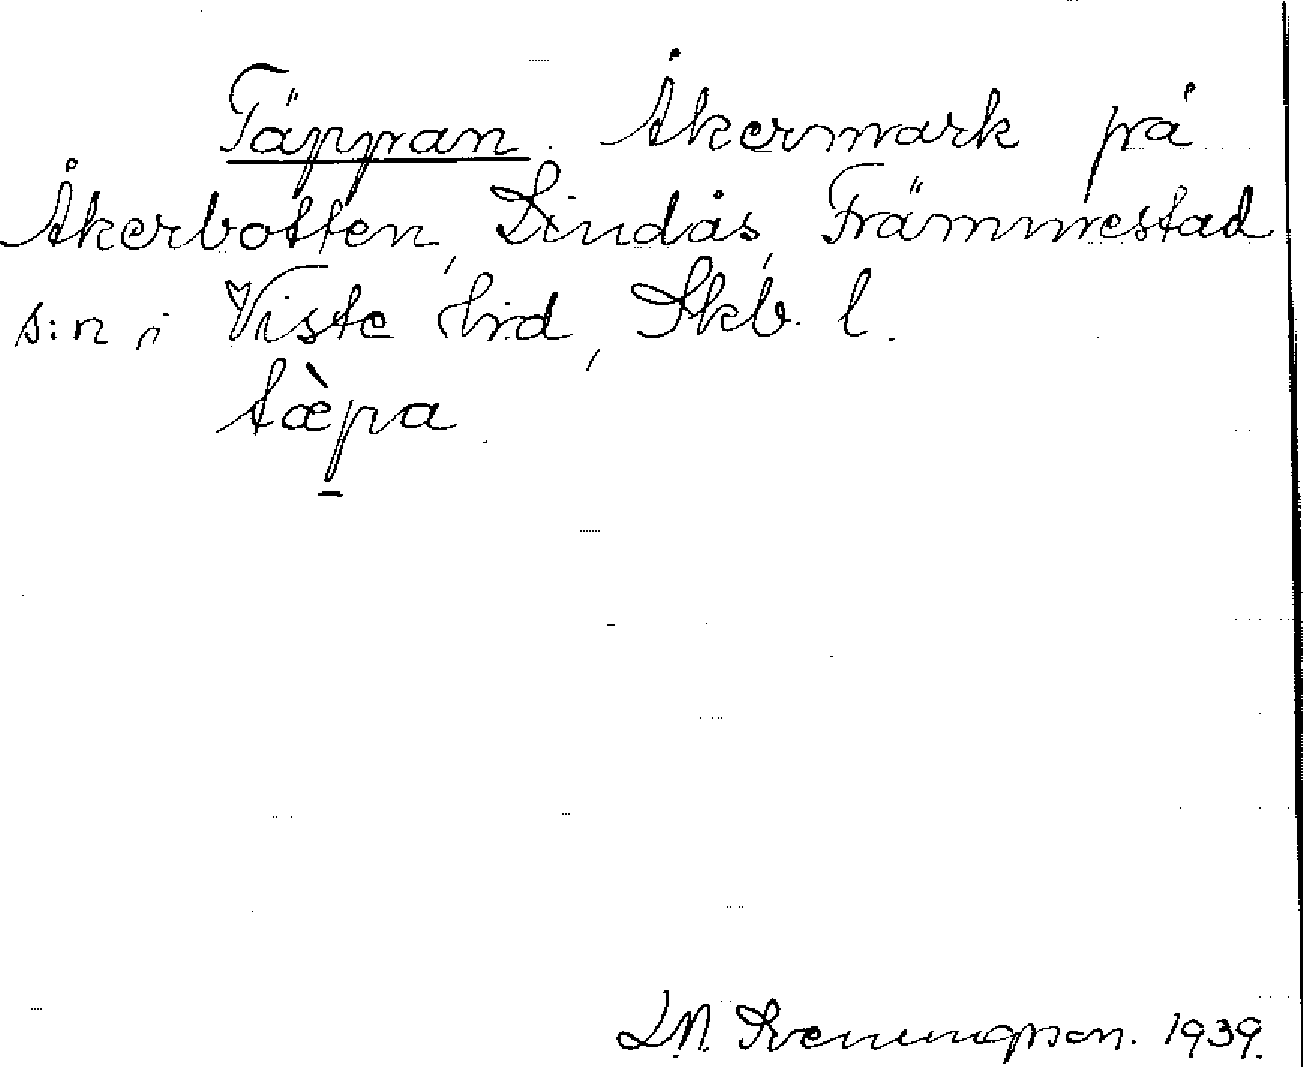 Täppan. Åkermark på
Åkerbotten, Lindås, Främmestad
s:n i Viste hrd, Skb. l.
tæ̀pa
S.N. Svenungsson. 1939.